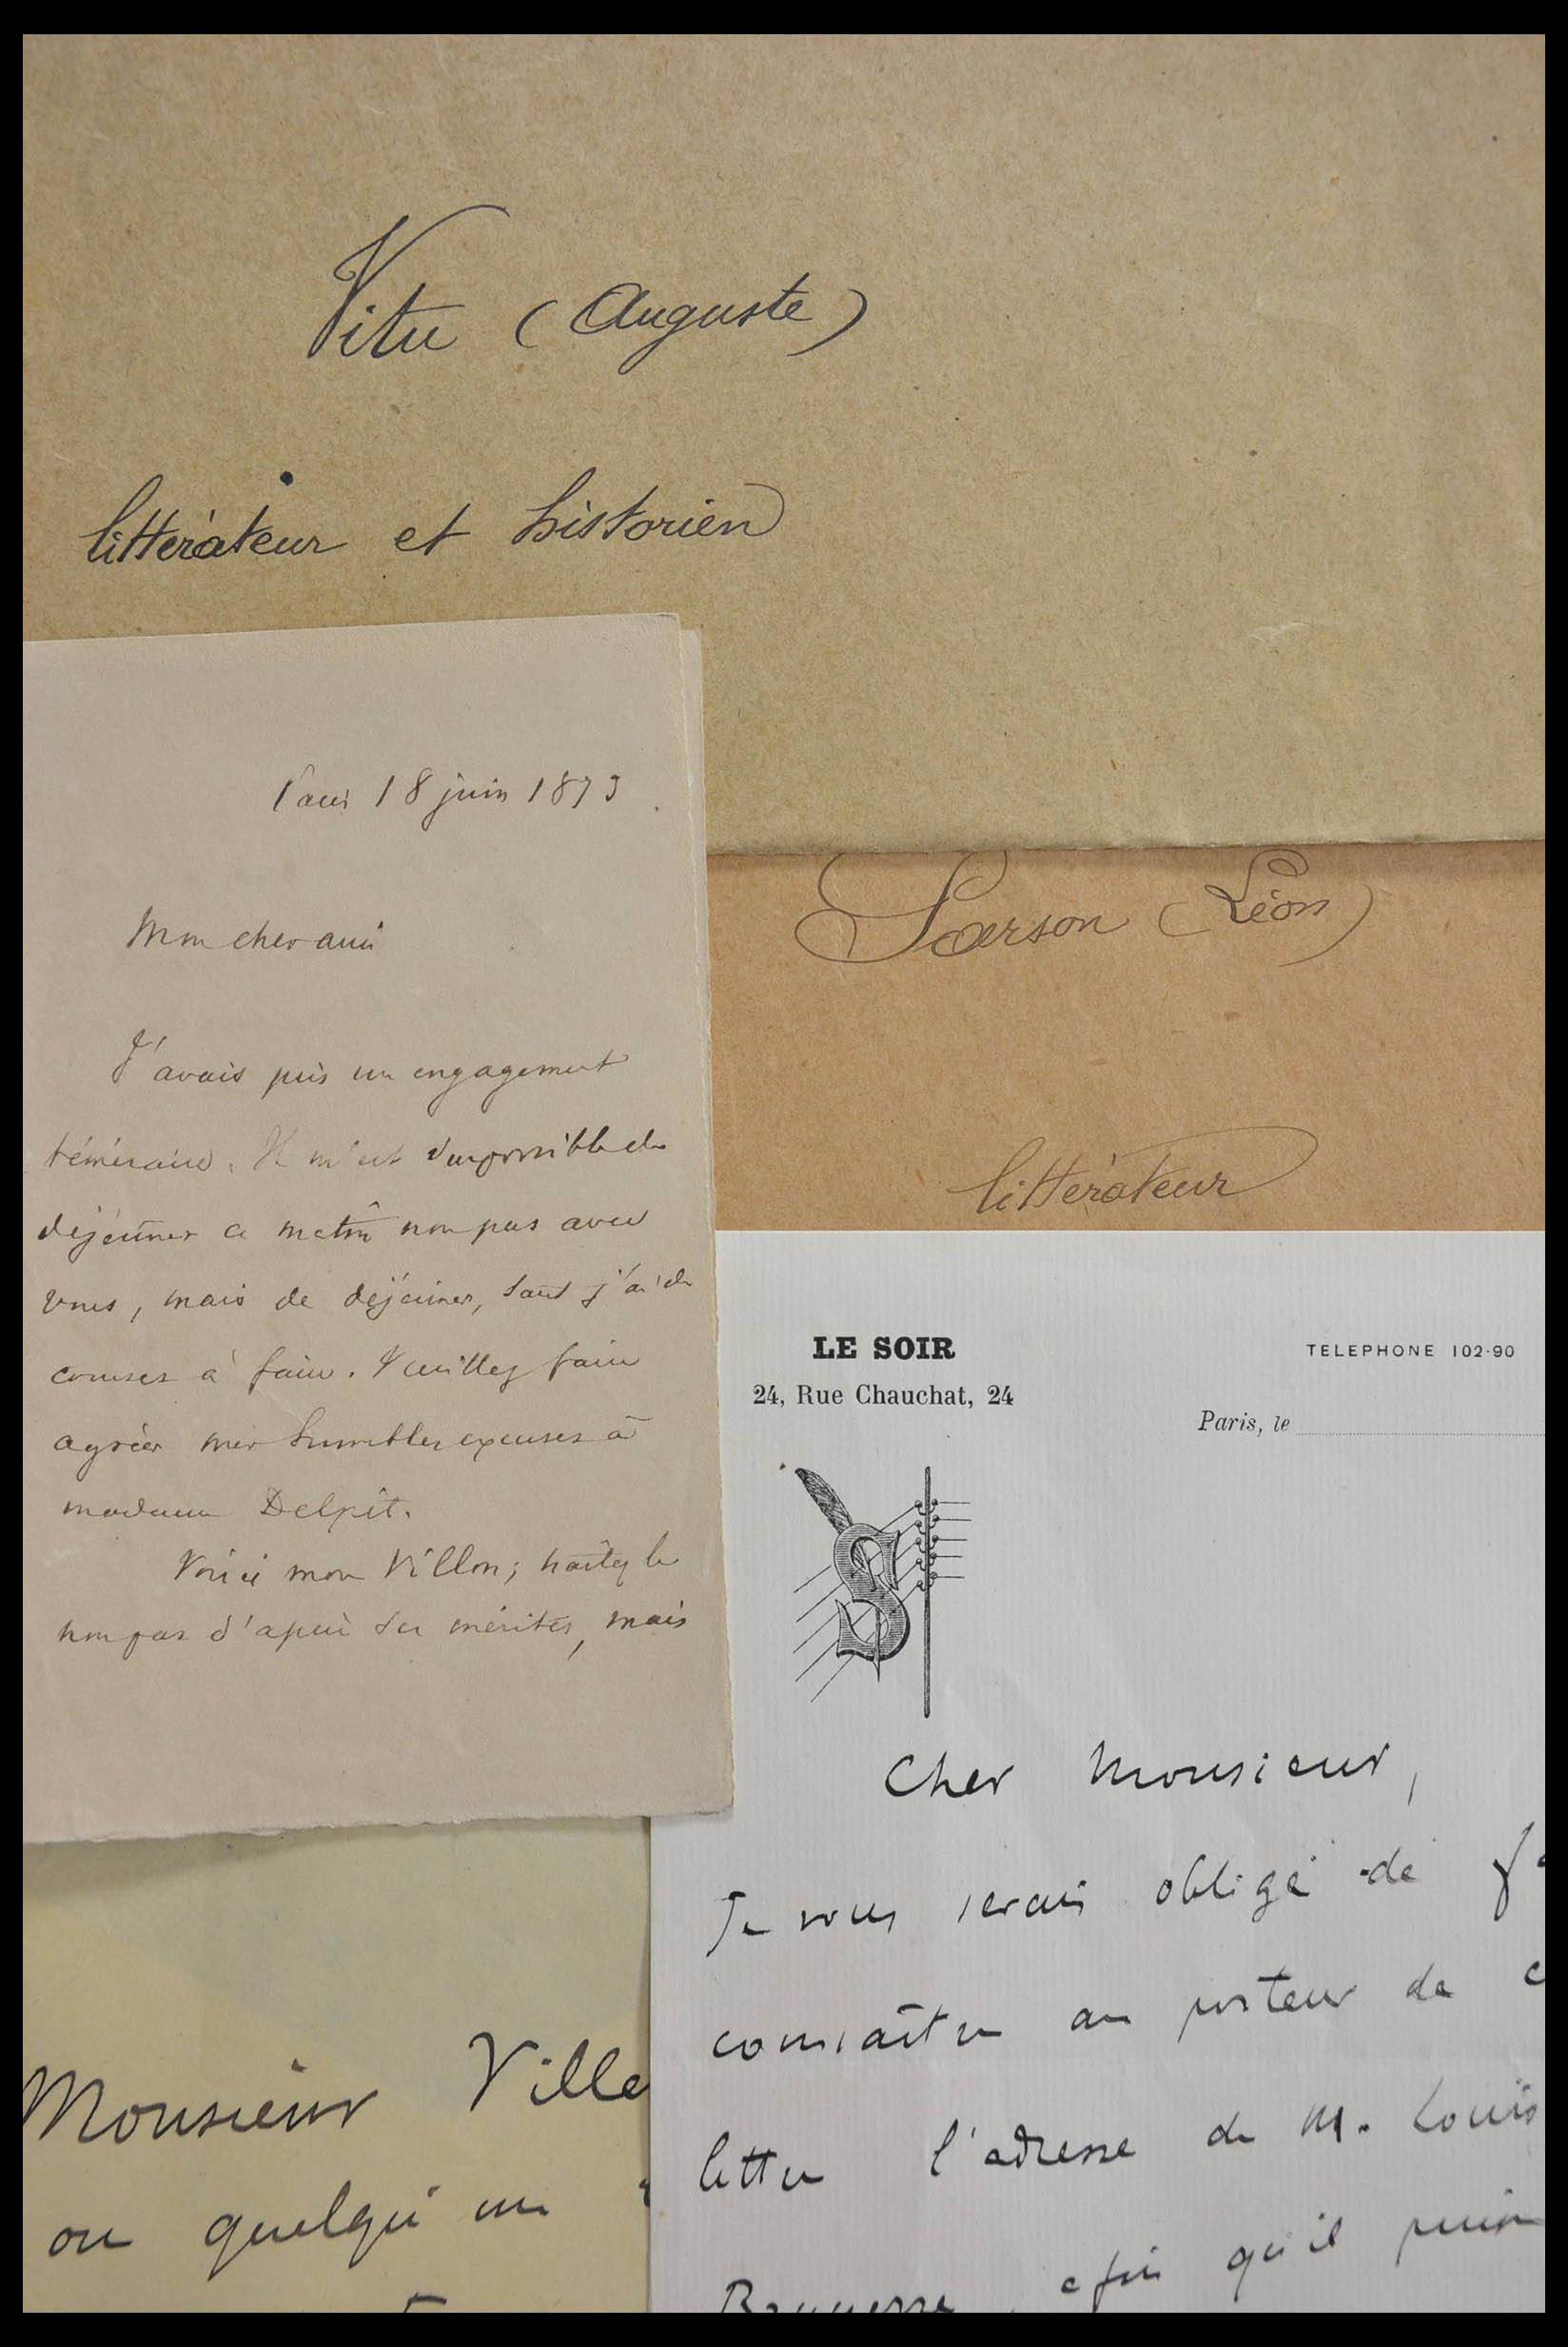 Vitu (Auguste)
littérateur et historien
Paris 18 juin 1873
Mon cher ami
J'avais pris un engagement
téméraire. Il m'est impossible de
déjeûner ce matin non pas avec
vous, mais de déjeûner, tant j'ai de
courses à faire. Veuillez faire
agréer mes humbles excuses à
madame Delpit.
Voici mon Villon; traitez le
non pas d'après ses mérites, mais
(Léon)
littérateur
LE SOIR
24, Rue Chauchat, 24
TELEPHONE 102-90
Paris, le
S
Cher Monsieur,
Je vous serais obligé de
connaître au porteur de
lettre l'adresse de M. Louis
afin qu'il puisse
Monsieur Ville
ou quelqu'un